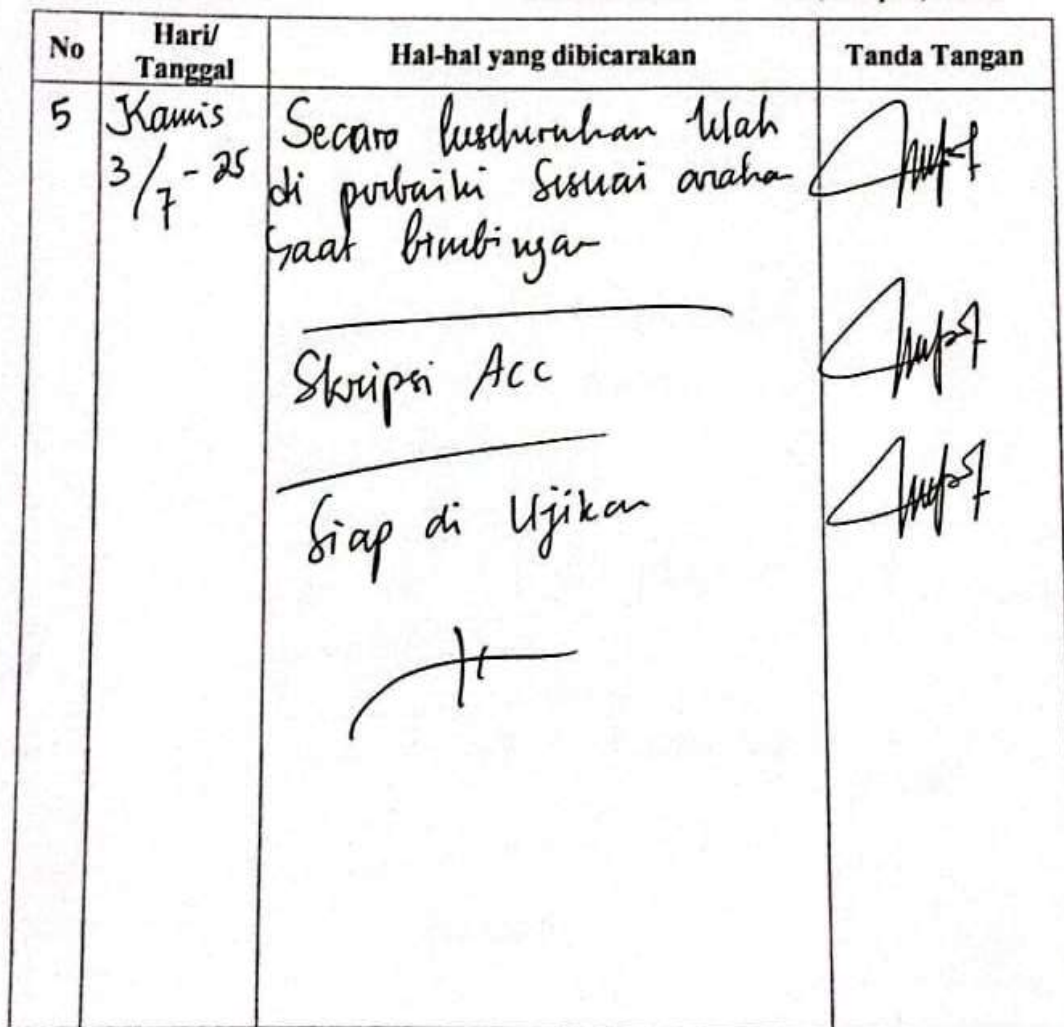 No
Hari/
Tanggal
Hal-hal yang dibicarakan
Tanda Tangan
5
Kamis
3/7 - 25
Secara keseluruhan telah
di perbaiki sesuai arahan
saat bimbingan
Skripsi Acc
Siap di Ujikan